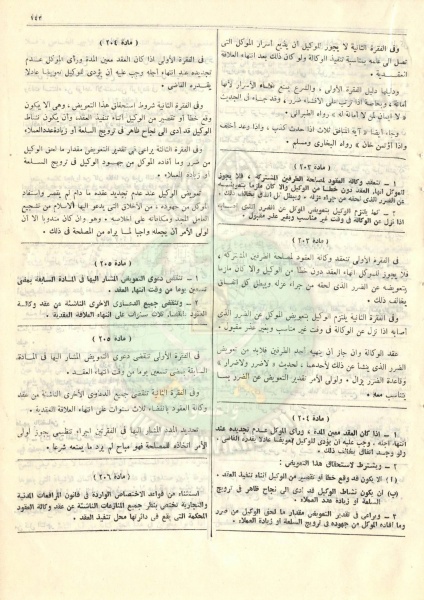 ١٤٣
وفى الفقرة الثانية لا يجوز للوكيل أن يذيع أسرار الموكل التى
تصل الى علمه بمناسبة تنفيذ الوكالة ولو كان ذلك بعد انتهاء العلاقة
العقدية ٠
ودليلها دليل الفقرة الأولى، والشرع يمنع افشاء الأسرار لأنها
أمانة
« لا إيمان لمن لا أمانة له » رواه الطبرانى ٠
وجاء أيضا « آية المنافق ثلاث اذا حدث كذب ، واذا وعد أخلف
واذا أؤتمن خان » رواه البخارى ومسلم ٠
( مادة ٢٠٣ )
١ – تنعقد وكالة العقود لمصلحة الطرفين المشتركة ، فلا يجوز
للموكل انهاء العقد دون خطأ من الوكيل والا كان ملزما بتعويضه
عن الضرر الذى لحقه من جراء عزله ، ويبطل كل اتفاق يخالف ذلك ٠
٢ – كما يلتزم الوكيل بتعويض الموكل عن الضرر الذى أصابه
اذا نزل عن الوكالة فى وقت غير مناسب وبغير عذر مقبول ٠
( مادة ٢٠٣ )
فى الفقرة الأولى تنعقد وكالة العقود لمصلحة الطرفين المشتركة ،
فلا يجوز للموكل انهاء العقد دون خطأ من الوكيل والا كان ملزما
بتعويضه عن الضرر الذى لحقه من جراء عزله ويبطل كل اتفاق
يخالف ذلك ٠
وفى الفقرة الثانية يلتزم الوكيل بتعويض الموكل عن الضرر الذى
أصابه اذا نزل عن الوكالة فى وقت غير مناسب وبغير عذر مقبول ٠
عقد الوكالة وان جاز أن ينهيه أحد الطرفين فلابد من تعويض
الضرر الذى ينشأ عن ذلك لأحدهما ، لحديث « لاضرر ولاضرار »
وقاعدة الضرر يزال ٠ ولولى الأمر تقدير التعويض عن الضرر بما
يتناسب معه ٠
( مادة ٢٠٤ )
١ – اذا كان العقد معين المدة ، ورأى الموكل عدم تجديده عند
انتهاء أجله ، وجب عليه أن يؤدى للوكيل تعويضا عادلا يقدره القاضى ،
ولو وجد اتفاق يخالف ذلك ٠
٢ – ويشترط لاستحقاق هذا التعويض :
( أ ) ألا يكون قد وقع خطأ أو تقصير من الوكيل أثناء تنفيذ العقد ٠
(ب) أن يكون نشاط الوكيل قد أدى الى نجاح ظاهر فى ترويج
السلعة أو زيادة عدد العملاء ٠
٣ – ويراعى فى تقدير التعويض مقدار ما لحق الوكيل من ضرر
وما أفاده الموكل من جهوده فى ترويج السلعة أو زيادة العملاء ٠
( مادة ٢٠٤ )
فى الفقرة الأولى اذا كان العقد معين المدة ورأى الموكل عدم
تجديده عند انتهاء أجله وجب عليه أن يؤدى للوكيل تعويضا عادلا
يقدره القاضى ٠
وفى الفقرة الثانية شروط استحقاق هذا التعويض ، وهى ألا يكون
وقع خطأ أو تقصير من الوكيل أثناء تنفيذ العقد، وأن يكون نشاط
الوكيل قد أدى الى نجاح ظاهر فى ترويج السلعة أو زيادة عدد العملاء ٠
وفى الفقرة الثالثة يراعى فى تقدير التعويض مقدار ما لحق الوكيل
من ضرر وما أفاد الموكل من جهود الوكيل فى ترويج السلعة
أو زيادة العملاء ٠
تعويض الوكيل عند عدم تجديد عقده ما دام لم يقصر واستفاد
الموكل من جهوده ، من الأخلاق التى يدعو اليها الاسلام من تشجيع
العامل المجد ومكافأته على اخلاصه ٠ وهو وان كان مندوبا الا أن
لولى الأمر أن يجعله واجبا لما يراه من المصلحة فى ذلك ٠
( مادة ٢٠٥ )
١ – تنقضى دعوى التعويض المشار اليها فى المادة السابقة بمضى
تسعين يوما من وقت انتهاء العقد ٠
٢ – وتنقضى جميع الدعاوى الأخرى الناشئة عن عقد وكالة
العقود بانقضاء ثلاث سنوات على انتهاء العلاقة العقدية ٠
( مادة ٢٠٥ )
فى الفقرة الأولى تنقضى دعوى التعويض المشار اليها فى المادة
السابقة بمضى تسعين يوما من وقت انتهاء العقد ٠
وفى الفقرة الثانية تنقضى جميع الدعاوى الأخرى الناشئة عن عقد
وكالة العقود بانقضاء ثلاث سنوات على انتهاء العلاقة العقدية ٠
تحديد المدد المشار اليها فى الفقرتين اجراء تنظيمى يجوز لولى
الأمر اتخاذه للمصلحة فهو مباح لم يرد ما يمنعه شرعا ٠
( مادة ٢٠٦ )
استثناء من قواعد الاختصاص الواردة فى قانون المرافعات المدنية
والتجارية تختص بنظر جميع المنازعات الناشئة عن عقد وكالة العقود
المحكمة التى يقع فى دائرتها محل تنفيذ العقد ٠